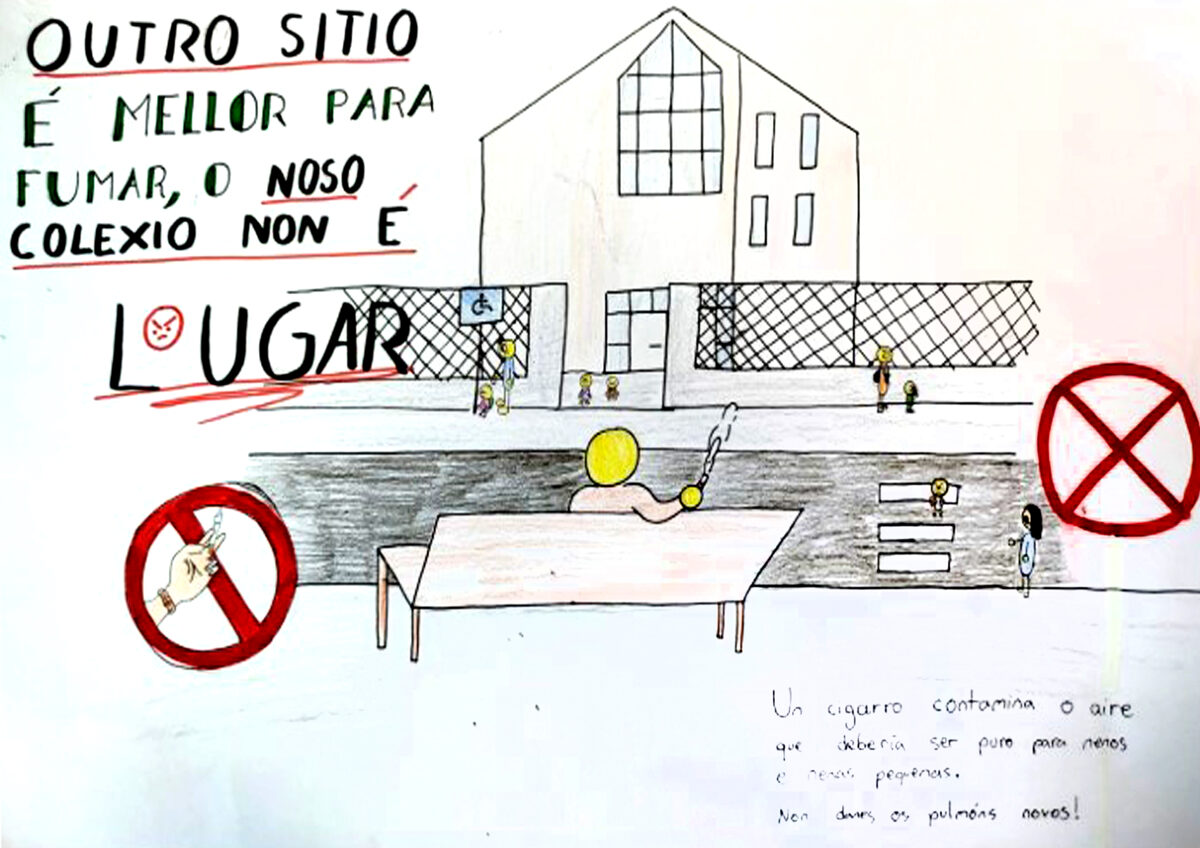 OUTRO SITIO
É MELLOR PARA
FUMAR, O NOSO
COLEXIO NON É
LUGAR
Un cigarro contamina o aire
que debería ser puro para nenos
e nenas pequenas.
Non danes os pulmóns novos!